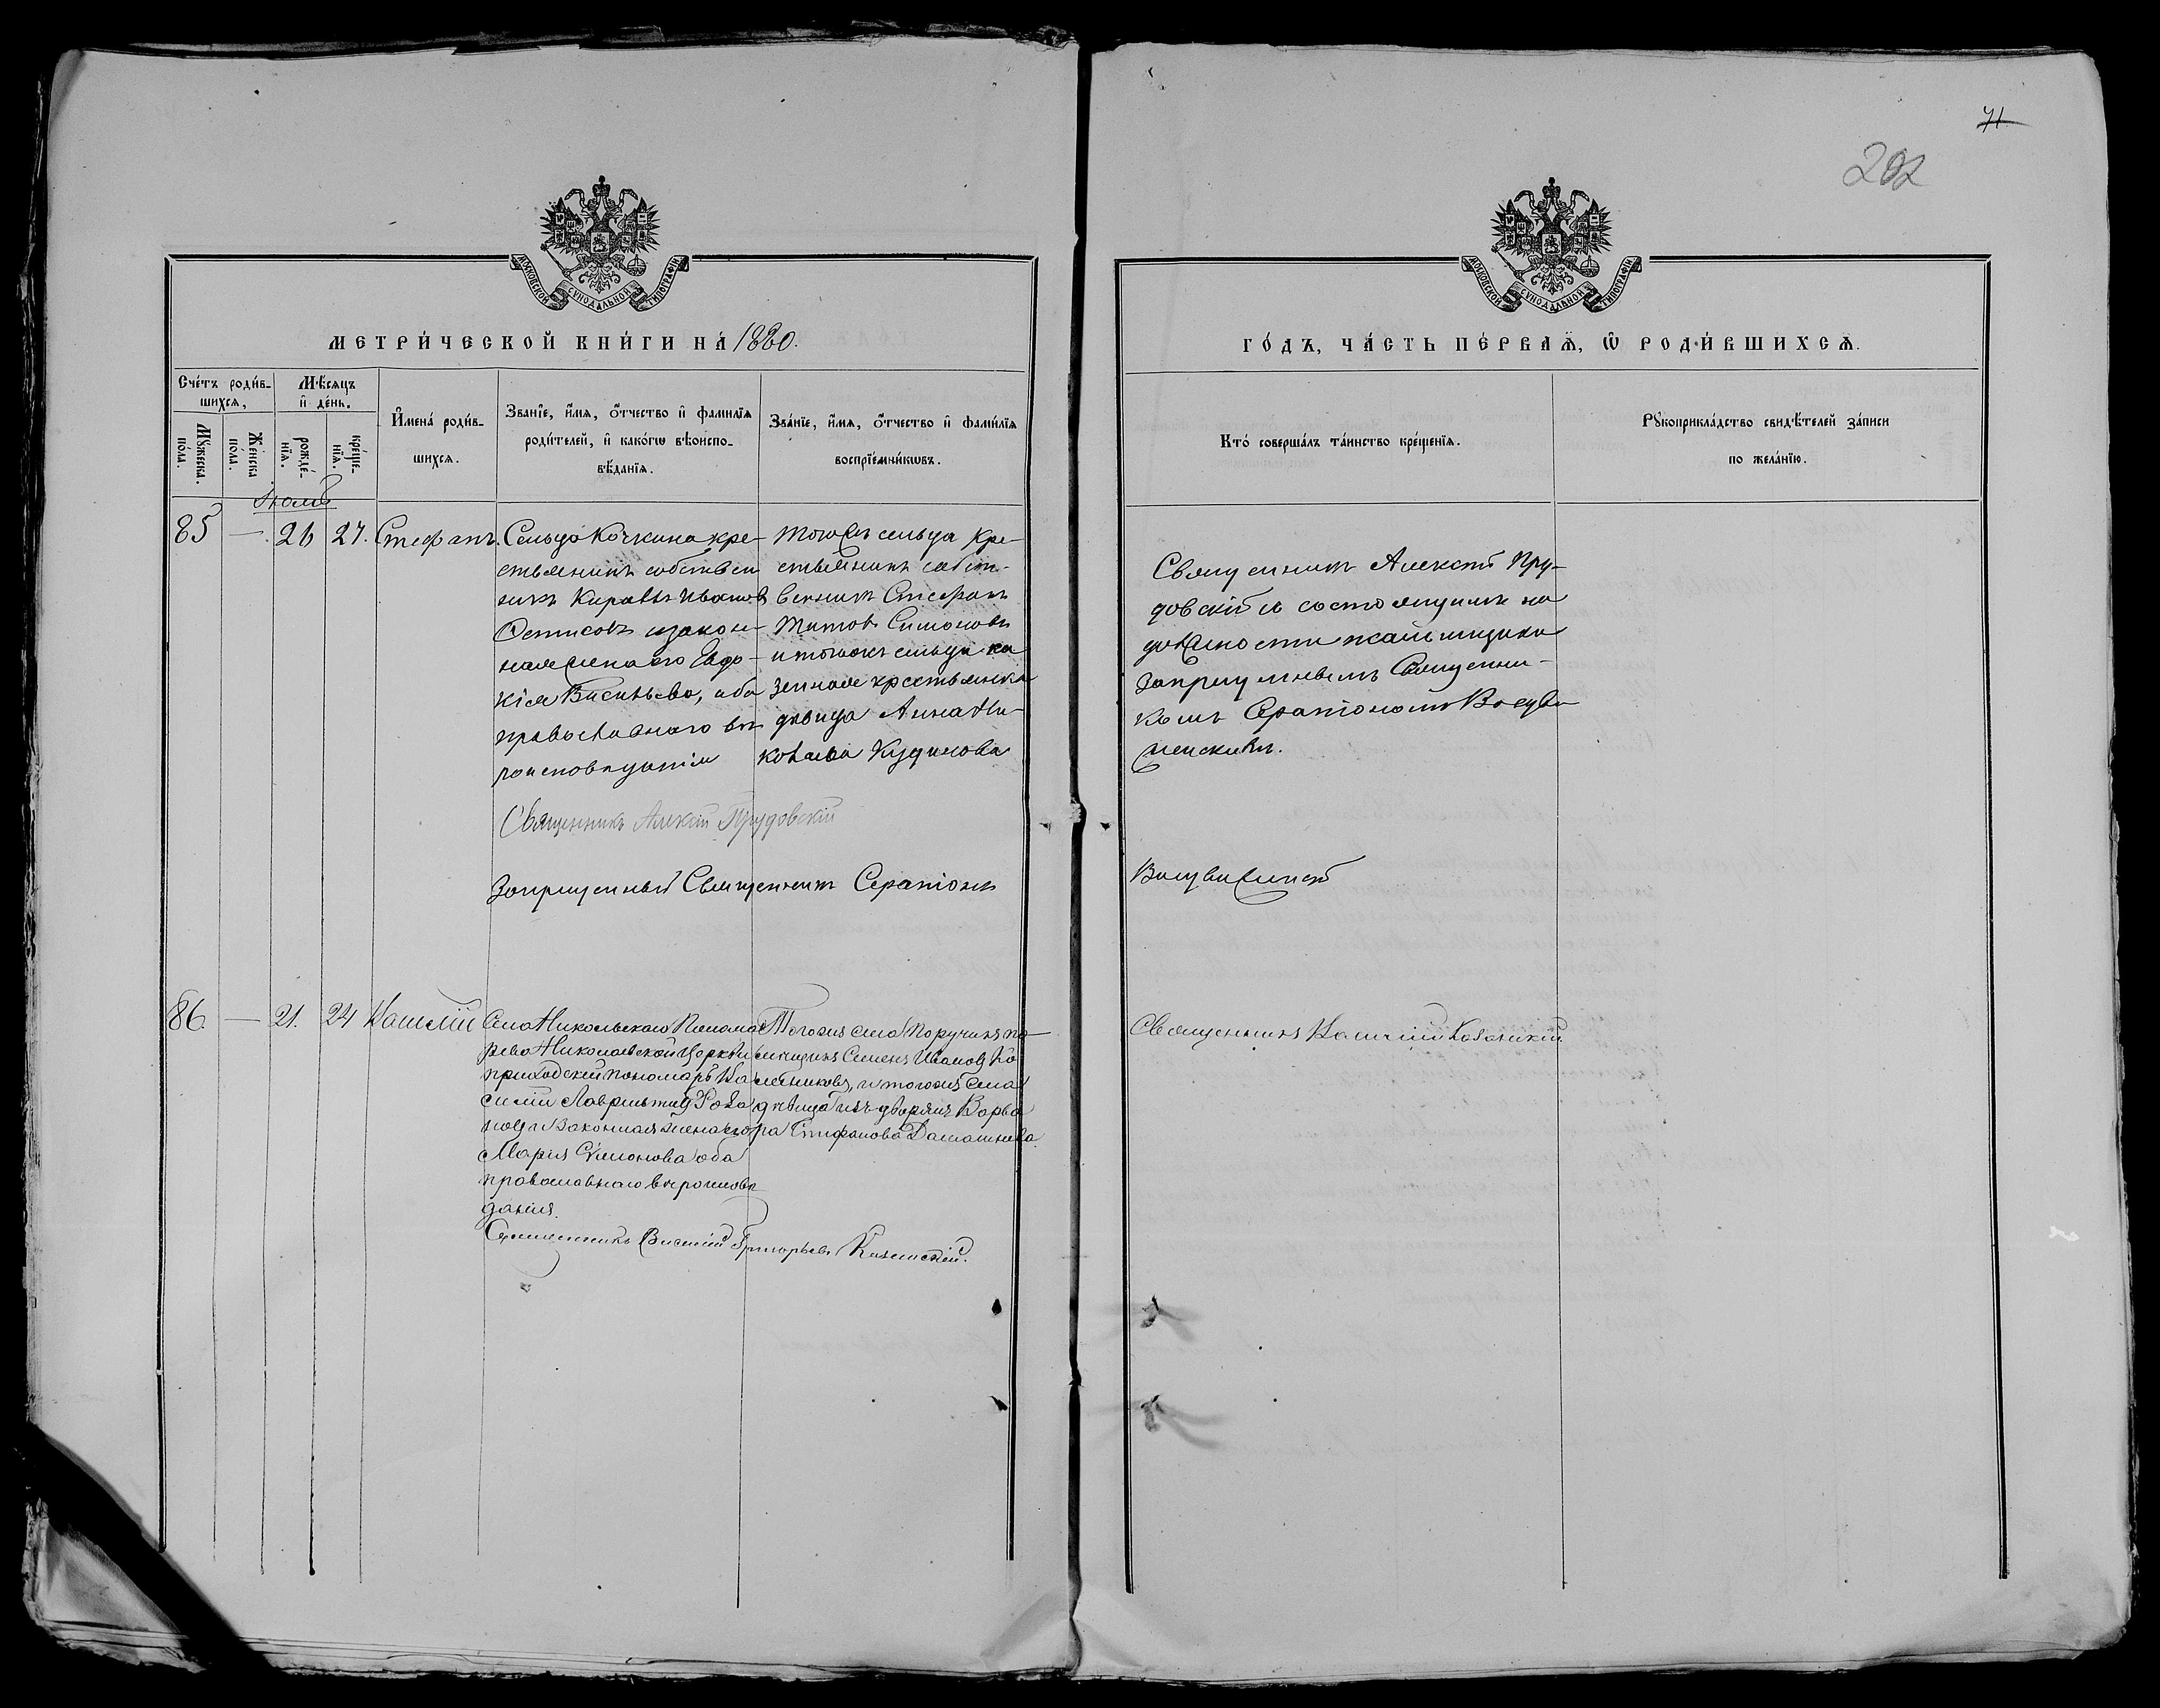 71
202
МОСКОВСКОЙ СѴНОДАЛЬНОЙ ТИПОГРАФІИ
МЕТРИ́ЧЕСКОЙ КНИ́ГИ НА́ 1880.
Сче́тъ роди́в-
шихсѧ,
Мѣ́сѧцъ
и҆ де́нь.
Мꙋ́жеска по́ла.
Же́нска по́ла.
рожде́-
нїѧ.
креще́-
нїѧ.
И҆мена̀ роди́в-
шихсѧ.
Зва́нїе, и҆́мѧ, ѻ҆́тчество и҆ фами́лїѧ
роди́телей, и҆ како́гѡ вѣроиспо-
вѣ́данїѧ.
Зва́нїе, и҆́мѧ, ѻ҆́тчество и҆ фами́лїѧ
воспрїе́мникѡвъ.
Іюль
85 — 26 27. Стефанъ.
Сельца Кочкина кре-
стьянинъ собствен
никъ Иванов
и закон-
ная жена его Евдо-
кія Васильева, оба
православнаго вѣ
роисповѣданія
тогожъ сельца кре-
стьянинъ собст-
венникъ Стефанъ
Титовъ Симоновъ
и тогожъ сельца ка
зенная крестьянка
дѣвица Анна Ни-
колаева Кудинова
Священникъ Алексій Прудовскій
Запрещенный Священникъ Серапіонъ
86. — 21. 24 Василій
Села Никольскаго Понома
рева Николаевской Церкви
приходской пономарь Ва
силій Лаврентіев
и законная жена его
Марія Симонова оба
православнаго вѣроисповѣ
данія.
Тогожъ села Поручикъ по-
мѣщикъ Семенъ Иванов
и тогожъ села
дѣвица изъ дворянъ Варва
ра Стефанова
Священникъ Василій Григорьевъ Казанскій.
МОСКОВСКОЙ СѴНОДАЛЬНОЙ ТИПОГРАФІИ
ГО́ДЪ, ЧА́СТЬ ПЕ́РВАѦ, Ѡ҆ РОДИ́ВШИХСѦ.
Кто̀ соверша́лъ та́инство креще́нїѧ.
Рꙋкоприкла́дство свидѣ́телей за́писи
по жела́нїю.
Священникъ Алексѣй Пру-
довскій съ состоящимъ на
должности
запрещеннымъ Священни-
комъ Серапіономъ Воздви
женскимъ.
Воздвиженскій
Священникъ Василій Казанскій